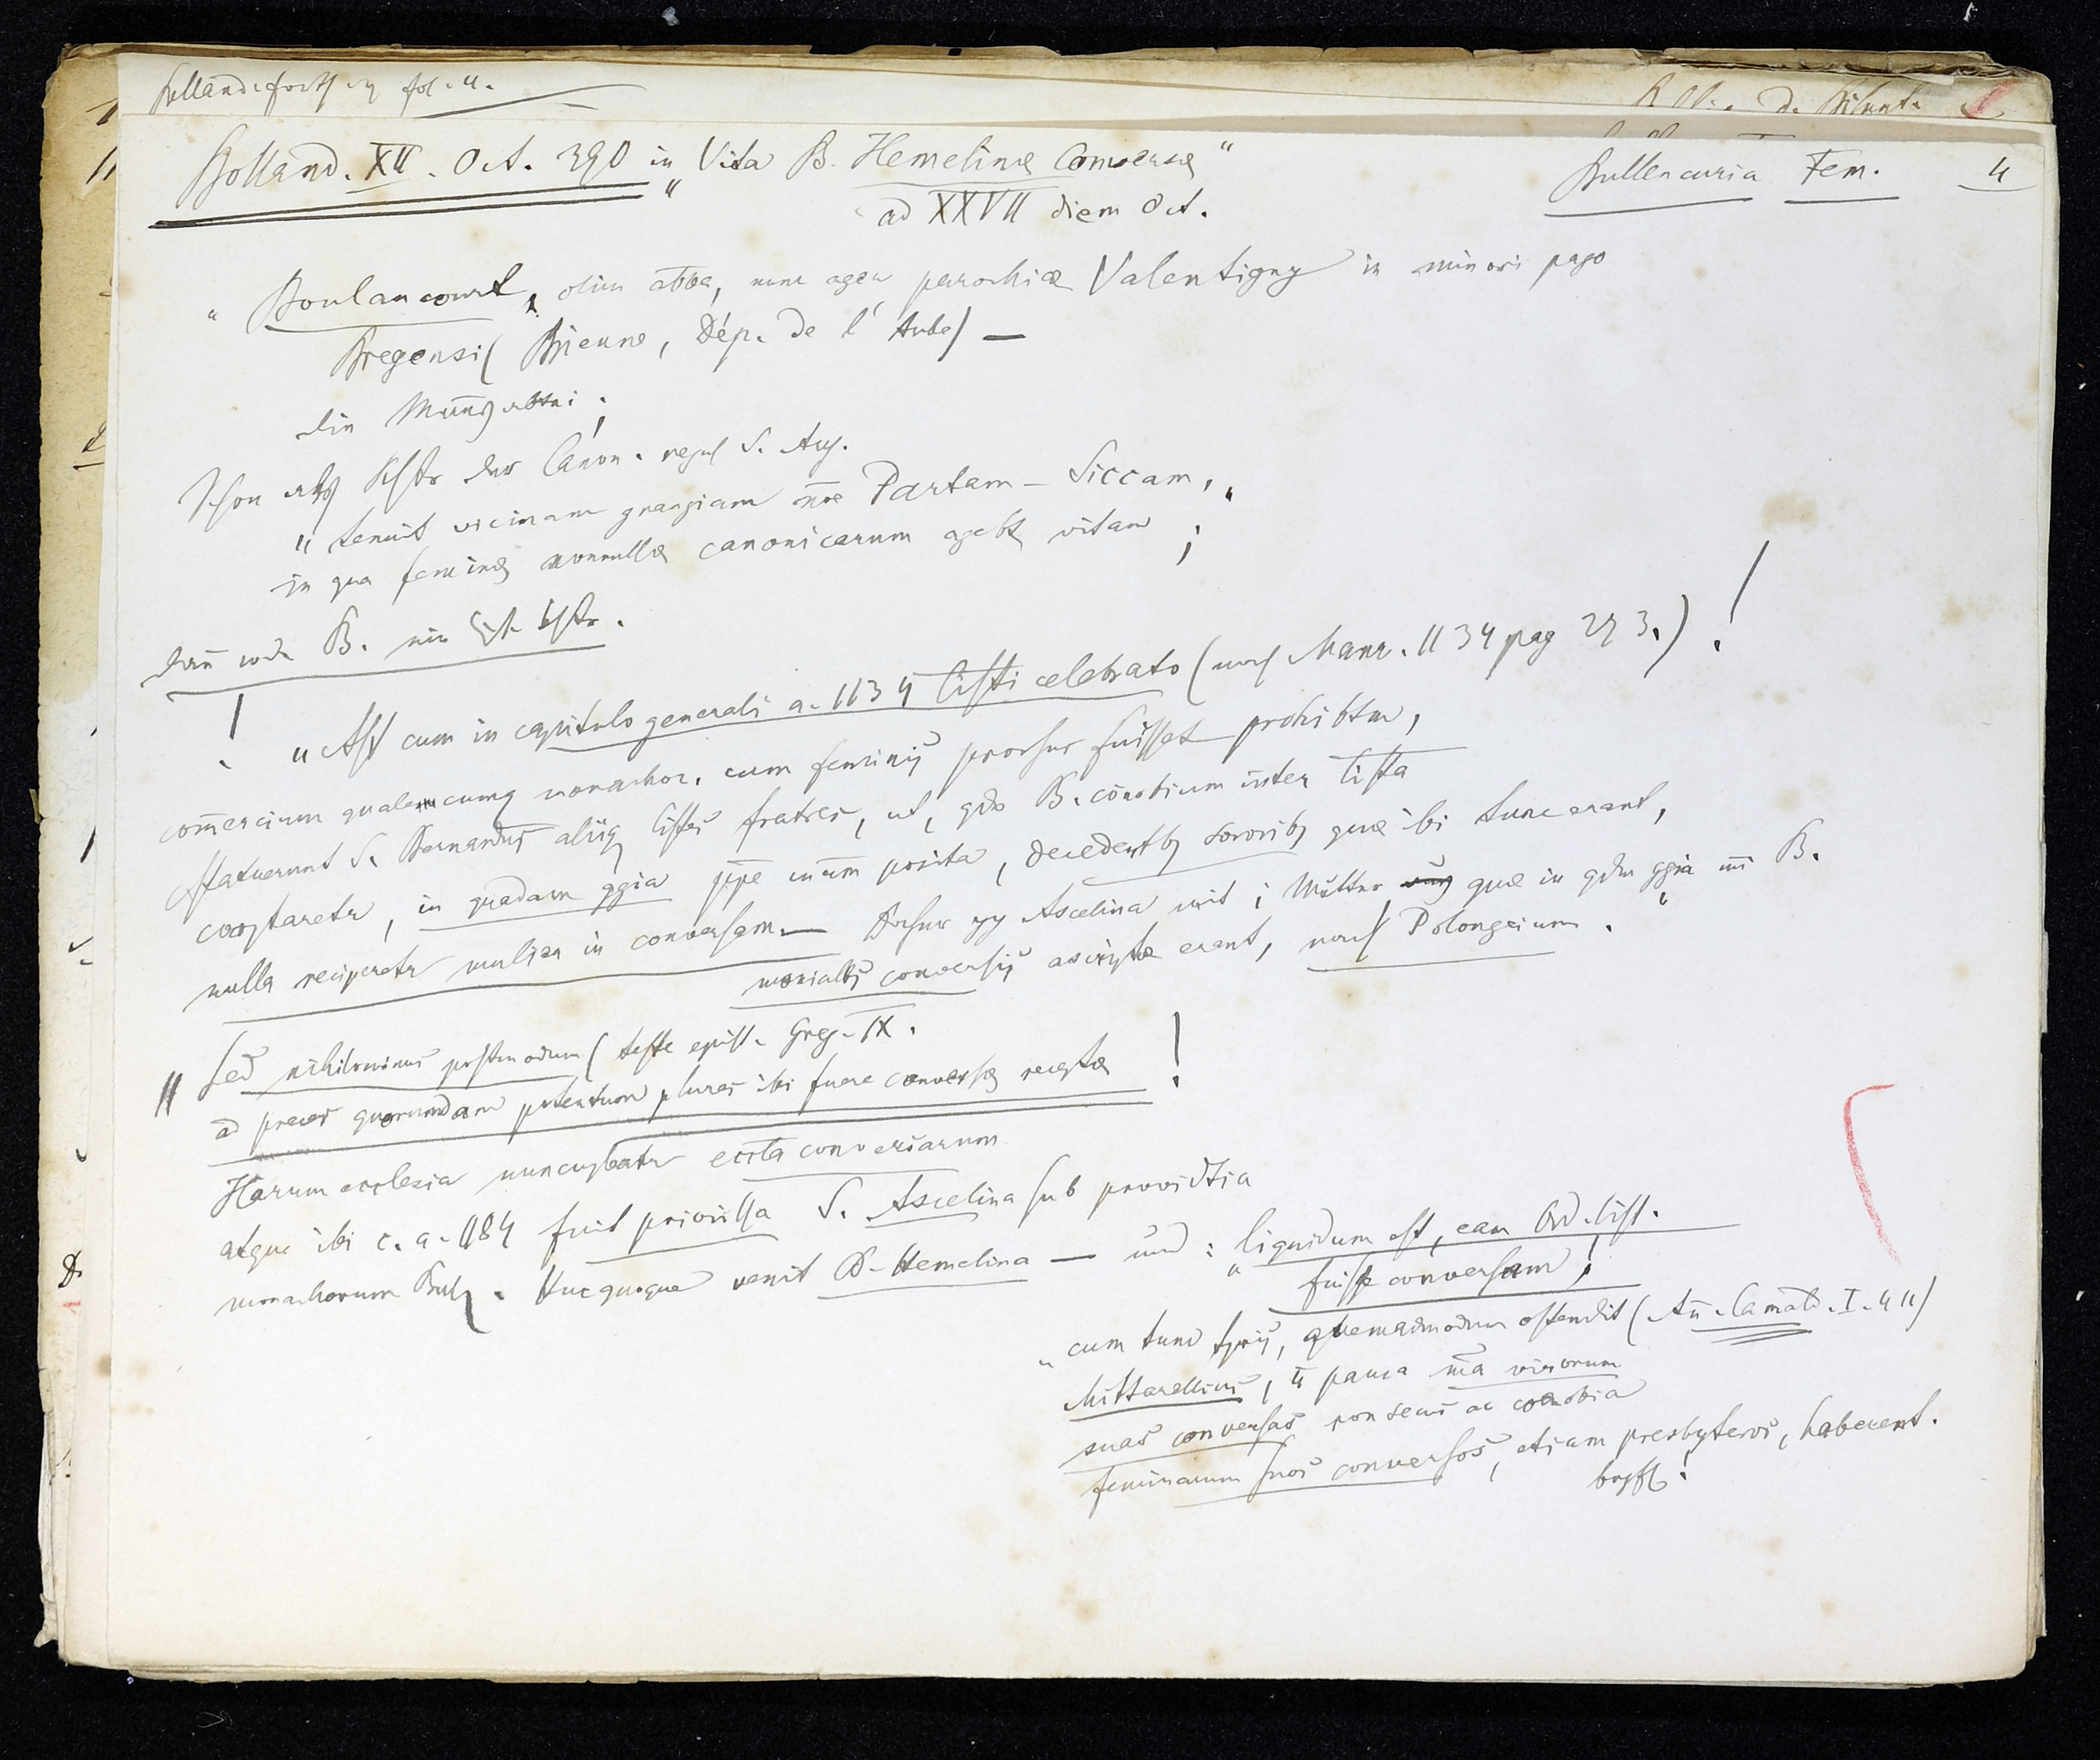 Bolland. XII. Oct. 390 in "Vita B. Hemelinæ Conversæ"
Bullencuria Fem. 4
ad XXVII diem Oct.
" Boulancourt, olim abba, nunc agen parochiæ Valentigny in minori pago
Bregensi (Brienne, Dép. de l'Aube) —
die
Schon als der Canon. regul S. Aug.
" tenuit vicinam grangiam nōe Partam-Siccam,"
in qua feminæ nonnullæ canonicarum agebt vitam ;
dan̄ B. ein Cist. Klstr.
! " Ast cum in capitulo generali a. 1134 Cistii celebrato (nach Manr. 1134 pag 273.) !
com̄ercium qualemcumq monachor. cum feminis prorsus fuisset prohibtm,
statuerunt S. Bernardus aliiq Cistes fratres, ut, qdo B. cōnobium inter Cista
cooptaretr, in quadam ggia ppe posita, decedentb sororib quæ ibi tunc erant,
nulla reciperetr mulier in conversam. — Ascelina mit ; Mutter quæ in qdm ggia B.
monialbs conversis ascriptæ erant, nach Polongeium. "
" sed nihilominus postmodum (teste epist. Greg. IX.
ad preces quorumdam potentum plures ibi fuere conversæ receptæ !
Harum ecclesia nuncupbatr eccla conversarum
atque ibi c. a. 1184 fuit priorissa S. Ascelina sub providtia
monachorum Bul. Huc quoque venit B. Hemelina — und : "liquidum est, eam Ord. Cist.
fuisse conversam ;
" cum tunc tpris, quemadmodum ostendit (An̄. Camald. I. 411)
Mittarellius, pauca mīa virorum
suas conversas non secus ac coenobia
feminarum suos conversos, etiam presbyteros, haberent.